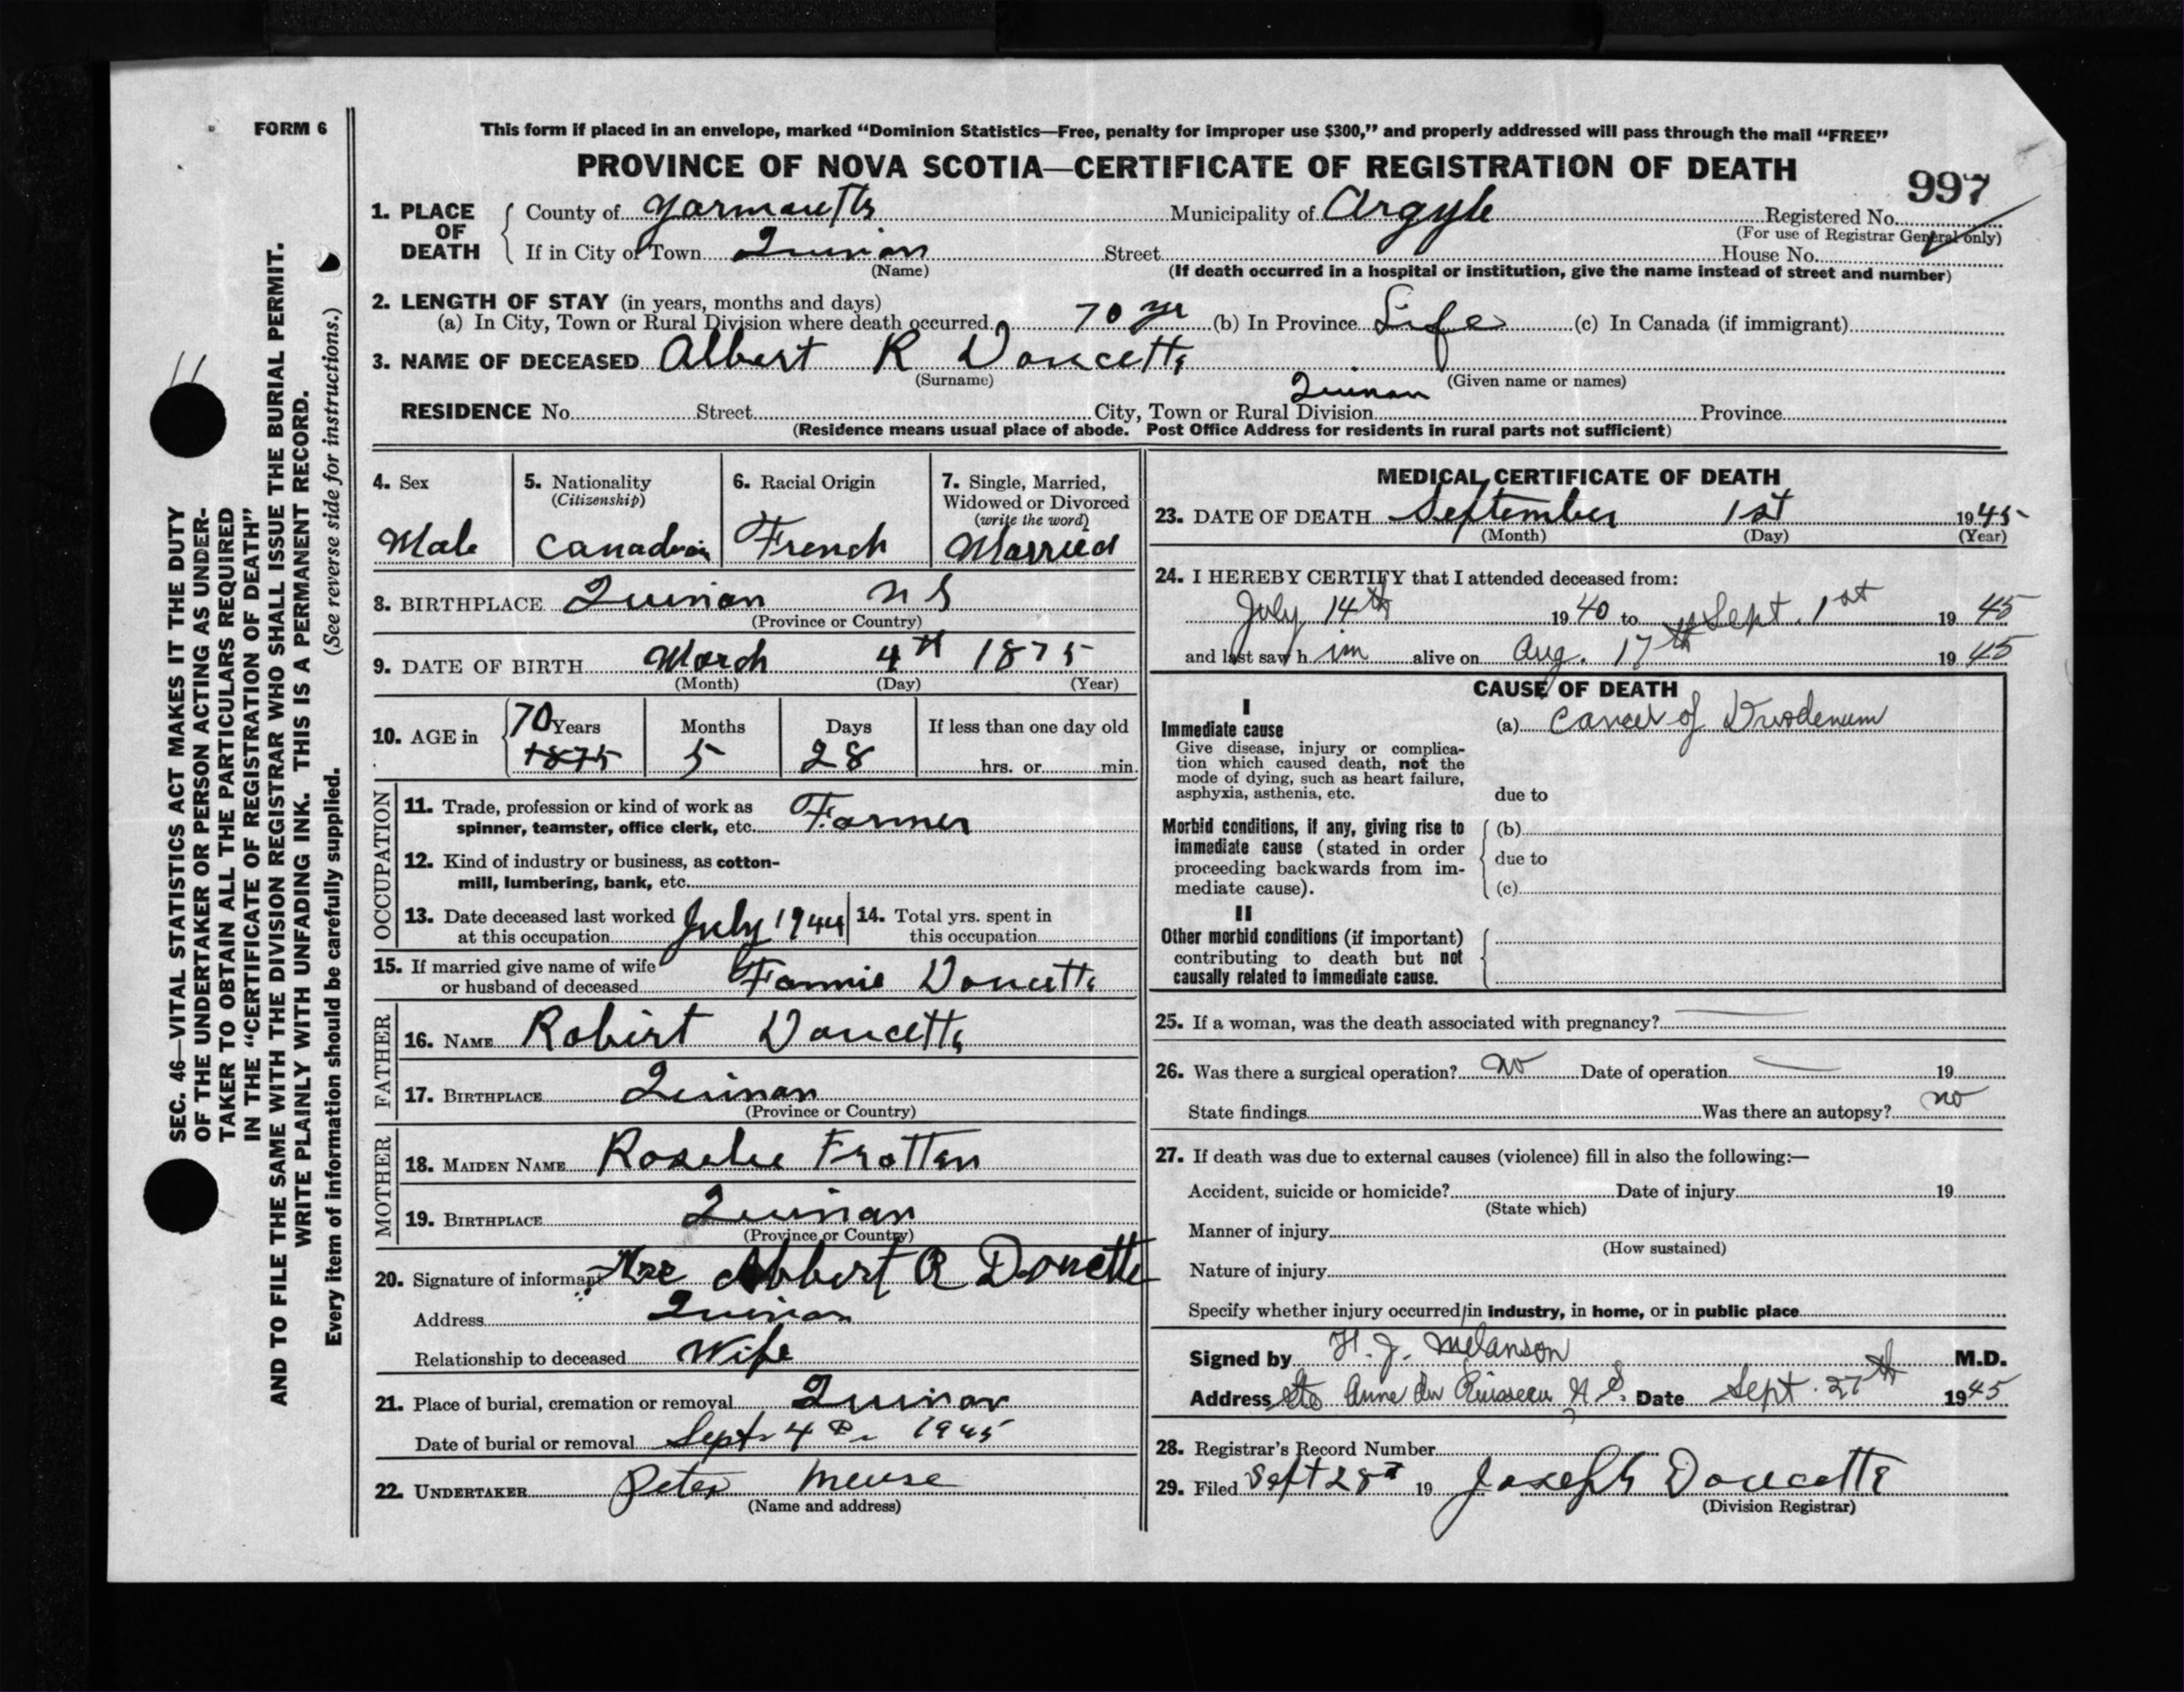 FORM 6
This form if placed in an envelope, marked “Dominion Statistics—Free, penalty for improper use $300,” and properly addressed will pass through the mail “FREE”
PROVINCE OF NOVA SCOTIA—CERTIFICATE OF REGISTRATION OF DEATH
997
1. PLACE OF DEATH County of Yarmouth Municipality of Argyle Registered No.
(For use of Registrar General only)
If in City or Town Quinan Street House No.
(Name) (If death occurred in a hospital or institution, give the name instead of street and number)
2. LENGTH OF STAY (in years, months and days)
(a) In City, Town or Rural Division where death occurred 70 yr (b) In Province Life (c) In Canada (if immigrant)
3. NAME OF DECEASED Albert R Doucette
(Surname) (Given name or names)
RESIDENCE No. Street City, Town or Rural Division Quinan Province
(Residence means usual place of abode. Post Office Address for residents in rural parts not sufficient)
4. Sex
Male
5. Nationality
(Citizenship)
Canadian
6. Racial Origin
French
7. Single, Married,
Widowed or Divorced
(write the word)
Married
8. BIRTHPLACE Quinan N S
(Province or Country)
9. DATE OF BIRTH March 4th 1875
(Month) (Day) (Year)
10. AGE in 70 Years Months Days If less than one day old
1875 5 28 hrs. or min.
OCCUPATION
11. Trade, profession or kind of work as
spinner, teamster, office clerk, etc. Farmer
12. Kind of industry or business, as cotton-
mill, lumbering, bank, etc.
13. Date deceased last worked
at this occupation July 1944
14. Total yrs. spent in
this occupation
15. If married give name of wife
or husband of deceased Fannie Doucette
FATHER
16. NAME Robert Doucette
17. BIRTHPLACE Quinan
(Province or Country)
MOTHER
18. MAIDEN NAME Roselie Frotten
19. BIRTHPLACE Quinan
(Province or Country)
20. Signature of informant Mrs Albert R Doucette
Address Quinan
Relationship to deceased Wife
21. Place of burial, cremation or removal Quinan
Date of burial or removal Sept 4th 1945
22. UNDERTAKER Peter Meuse
(Name and address)
MEDICAL CERTIFICATE OF DEATH
23. DATE OF DEATH September 1st 1945
(Month) (Day) (Year)
24. I HEREBY CERTIFY that I attended deceased from:
July 14th 1940 to Sept. 1st 1945
and last saw him alive on Aug. 17th 1945
CAUSE OF DEATH
I
Immediate cause
Give disease, injury or complica-
tion which caused death, not the
mode of dying, such as heart failure,
asphyxia, asthenia, etc.
(a) Cancer of Duodenum
due to
Morbid conditions, if any, giving rise to
immediate cause (stated in order
proceeding backwards from im-
mediate cause).
(b)
due to
(c)
II
Other morbid conditions (if important)
contributing to death but not
causally related to immediate cause.
25. If a woman, was the death associated with pregnancy?
26. Was there a surgical operation? No Date of operation 19
State findings Was there an autopsy? no
27. If death was due to external causes (violence) fill in also the following:—
Accident, suicide or homicide? Date of injury 19
(State which)
Manner of injury
(How sustained)
Nature of injury
Specify whether injury occurred in industry, in home, or in public place
Signed by H. J. Melanson M.D.
Address Ste Anne du Ruisseau N.S. Date Sept. 27th 1945
28. Registrar's Record Number
29. Filed Sept 28th 19 Joseph Doucette
(Division Registrar)
SEC. 46—VITAL STATISTICS ACT MAKES IT THE DUTY
OF THE UNDERTAKER OR PERSON ACTING AS UNDER-
TAKER TO OBTAIN ALL THE PARTICULARS REQUIRED
IN THE “CERTIFICATE OF REGISTRATION OF DEATH”
AND TO FILE THE SAME WITH THE DIVISION REGISTRAR WHO SHALL ISSUE THE BURIAL PERMIT.
WRITE PLAINLY WITH UNFADING INK. THIS IS A PERMANENT RECORD.
Every item of information should be carefully supplied. (See reverse side for instructions.)
11